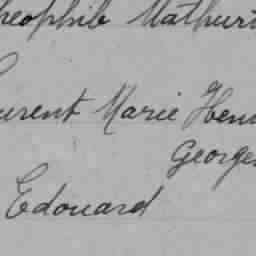 heophile Mathuri
urent Marie Hen
Georges
Edouard